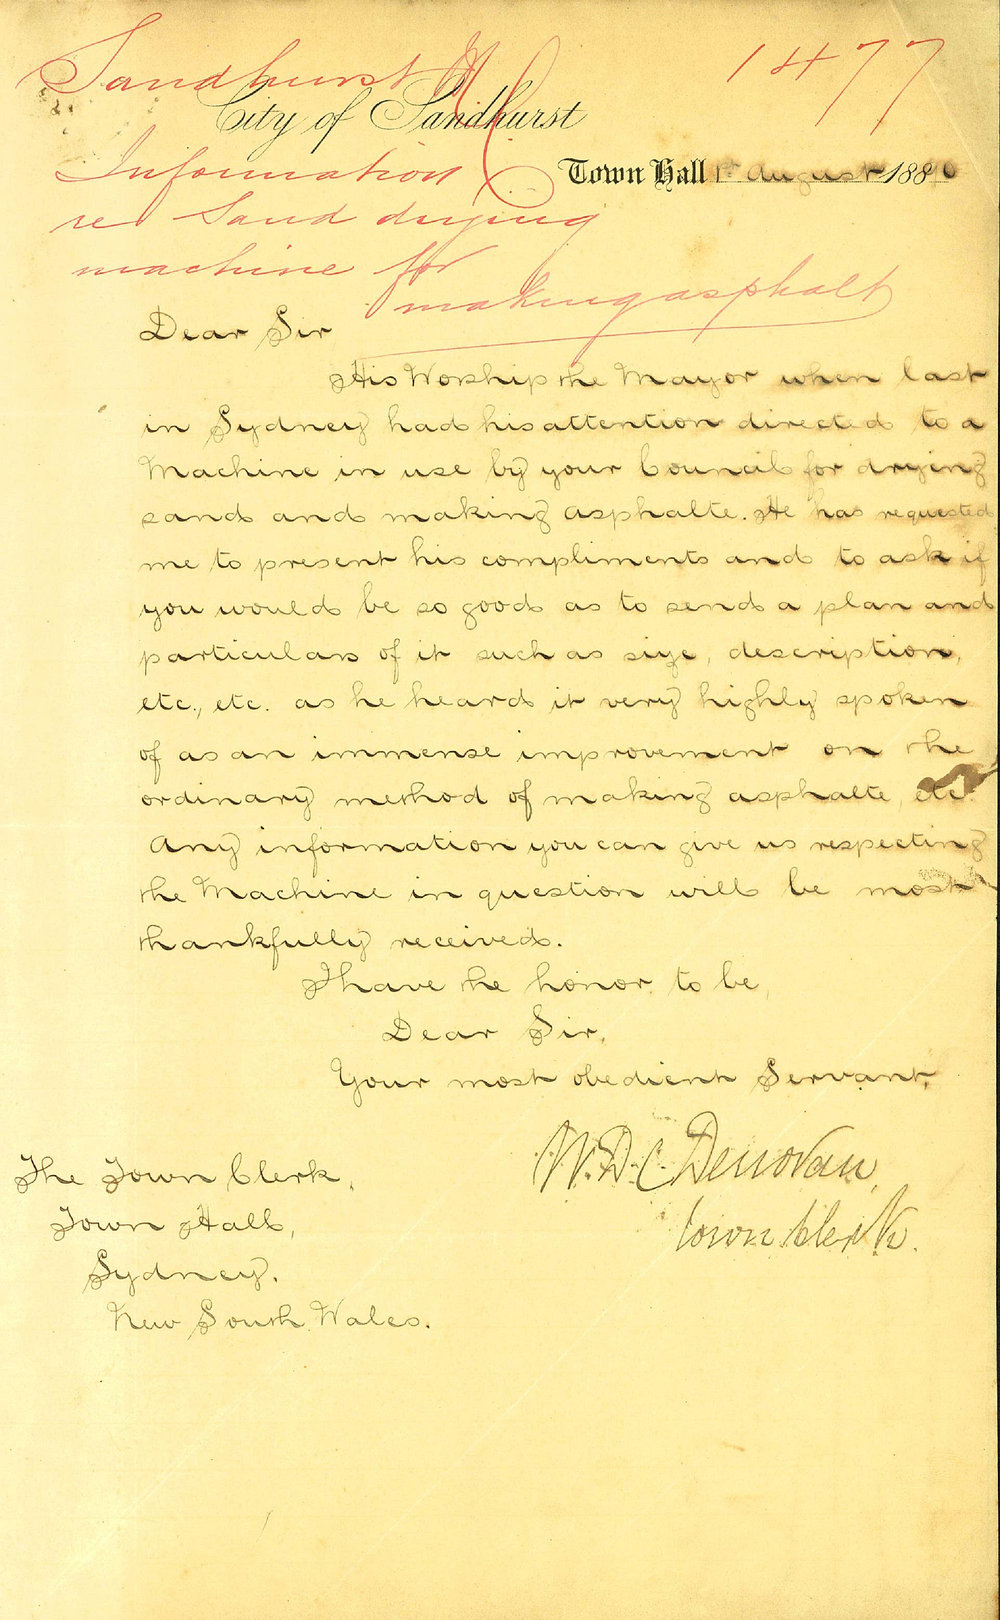 Sandhurst 1477
City of Sandhurst
Information
Town Hall 1st August 1880
re Sand drying
machine for
making asphalt
Dear Sir
His Worship the Mayor when last
in Sydney had his attention directed to a
Machine in use by your Council for drying
sand and making asphalte. He has requested
me to present his compliments and to ask if
you would be so good as to send a plan and
particulars of it such as size, description,
etc., etc. as he heard it very highly spoken
of as an immense improvement on the
ordinary method of making asphalte, etc.
Any information you can give us respecting
the Machine in question will be most
thankfully received.
I have the honor to be,
Dear Sir,
Your most obedient Servant,
W. D. C. Denovan,
Town Clerk.
The Town Clerk,
Town Hall,
Sydney.
New South Wales.